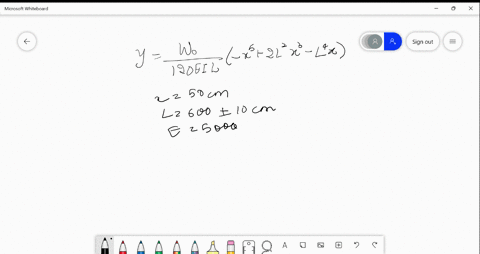 Microsoft Whiteboard
Sign out
y = W₀ / 120EIL (-x⁵ + 2L²x³ - L⁴x)
x = 50 cm
L = 600 ± 10 cm
E = 5000
A